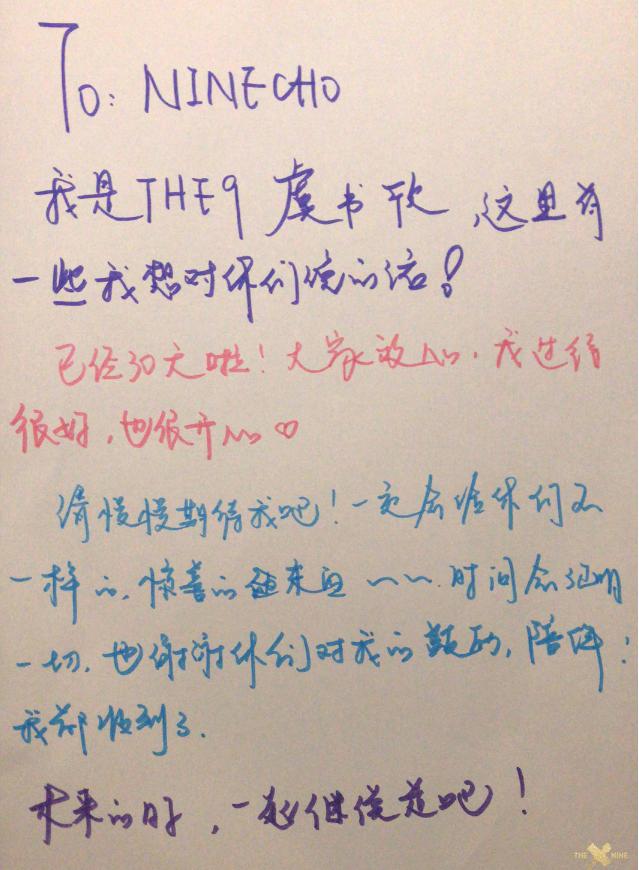 To: NINECHO
我是THE9 虞书欣,这里有
一些我想对你们说的话!
已经30天啦!大家放心,我过得
很好,也很开心♡
请慢慢期待我吧!一定会给你们不
一样的,惊喜的虞书欣~~.时间会证明
一切.也谢谢你们对我的鼓励,陪伴:
我都收到了.
未来的时,一起继续走吧!
THE NINE